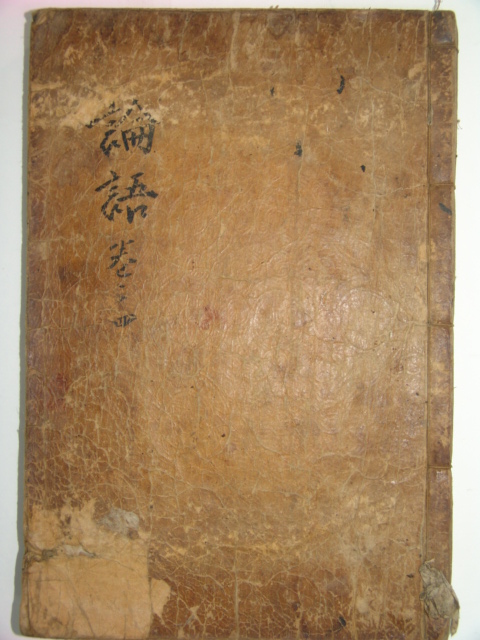 論語 卷之四